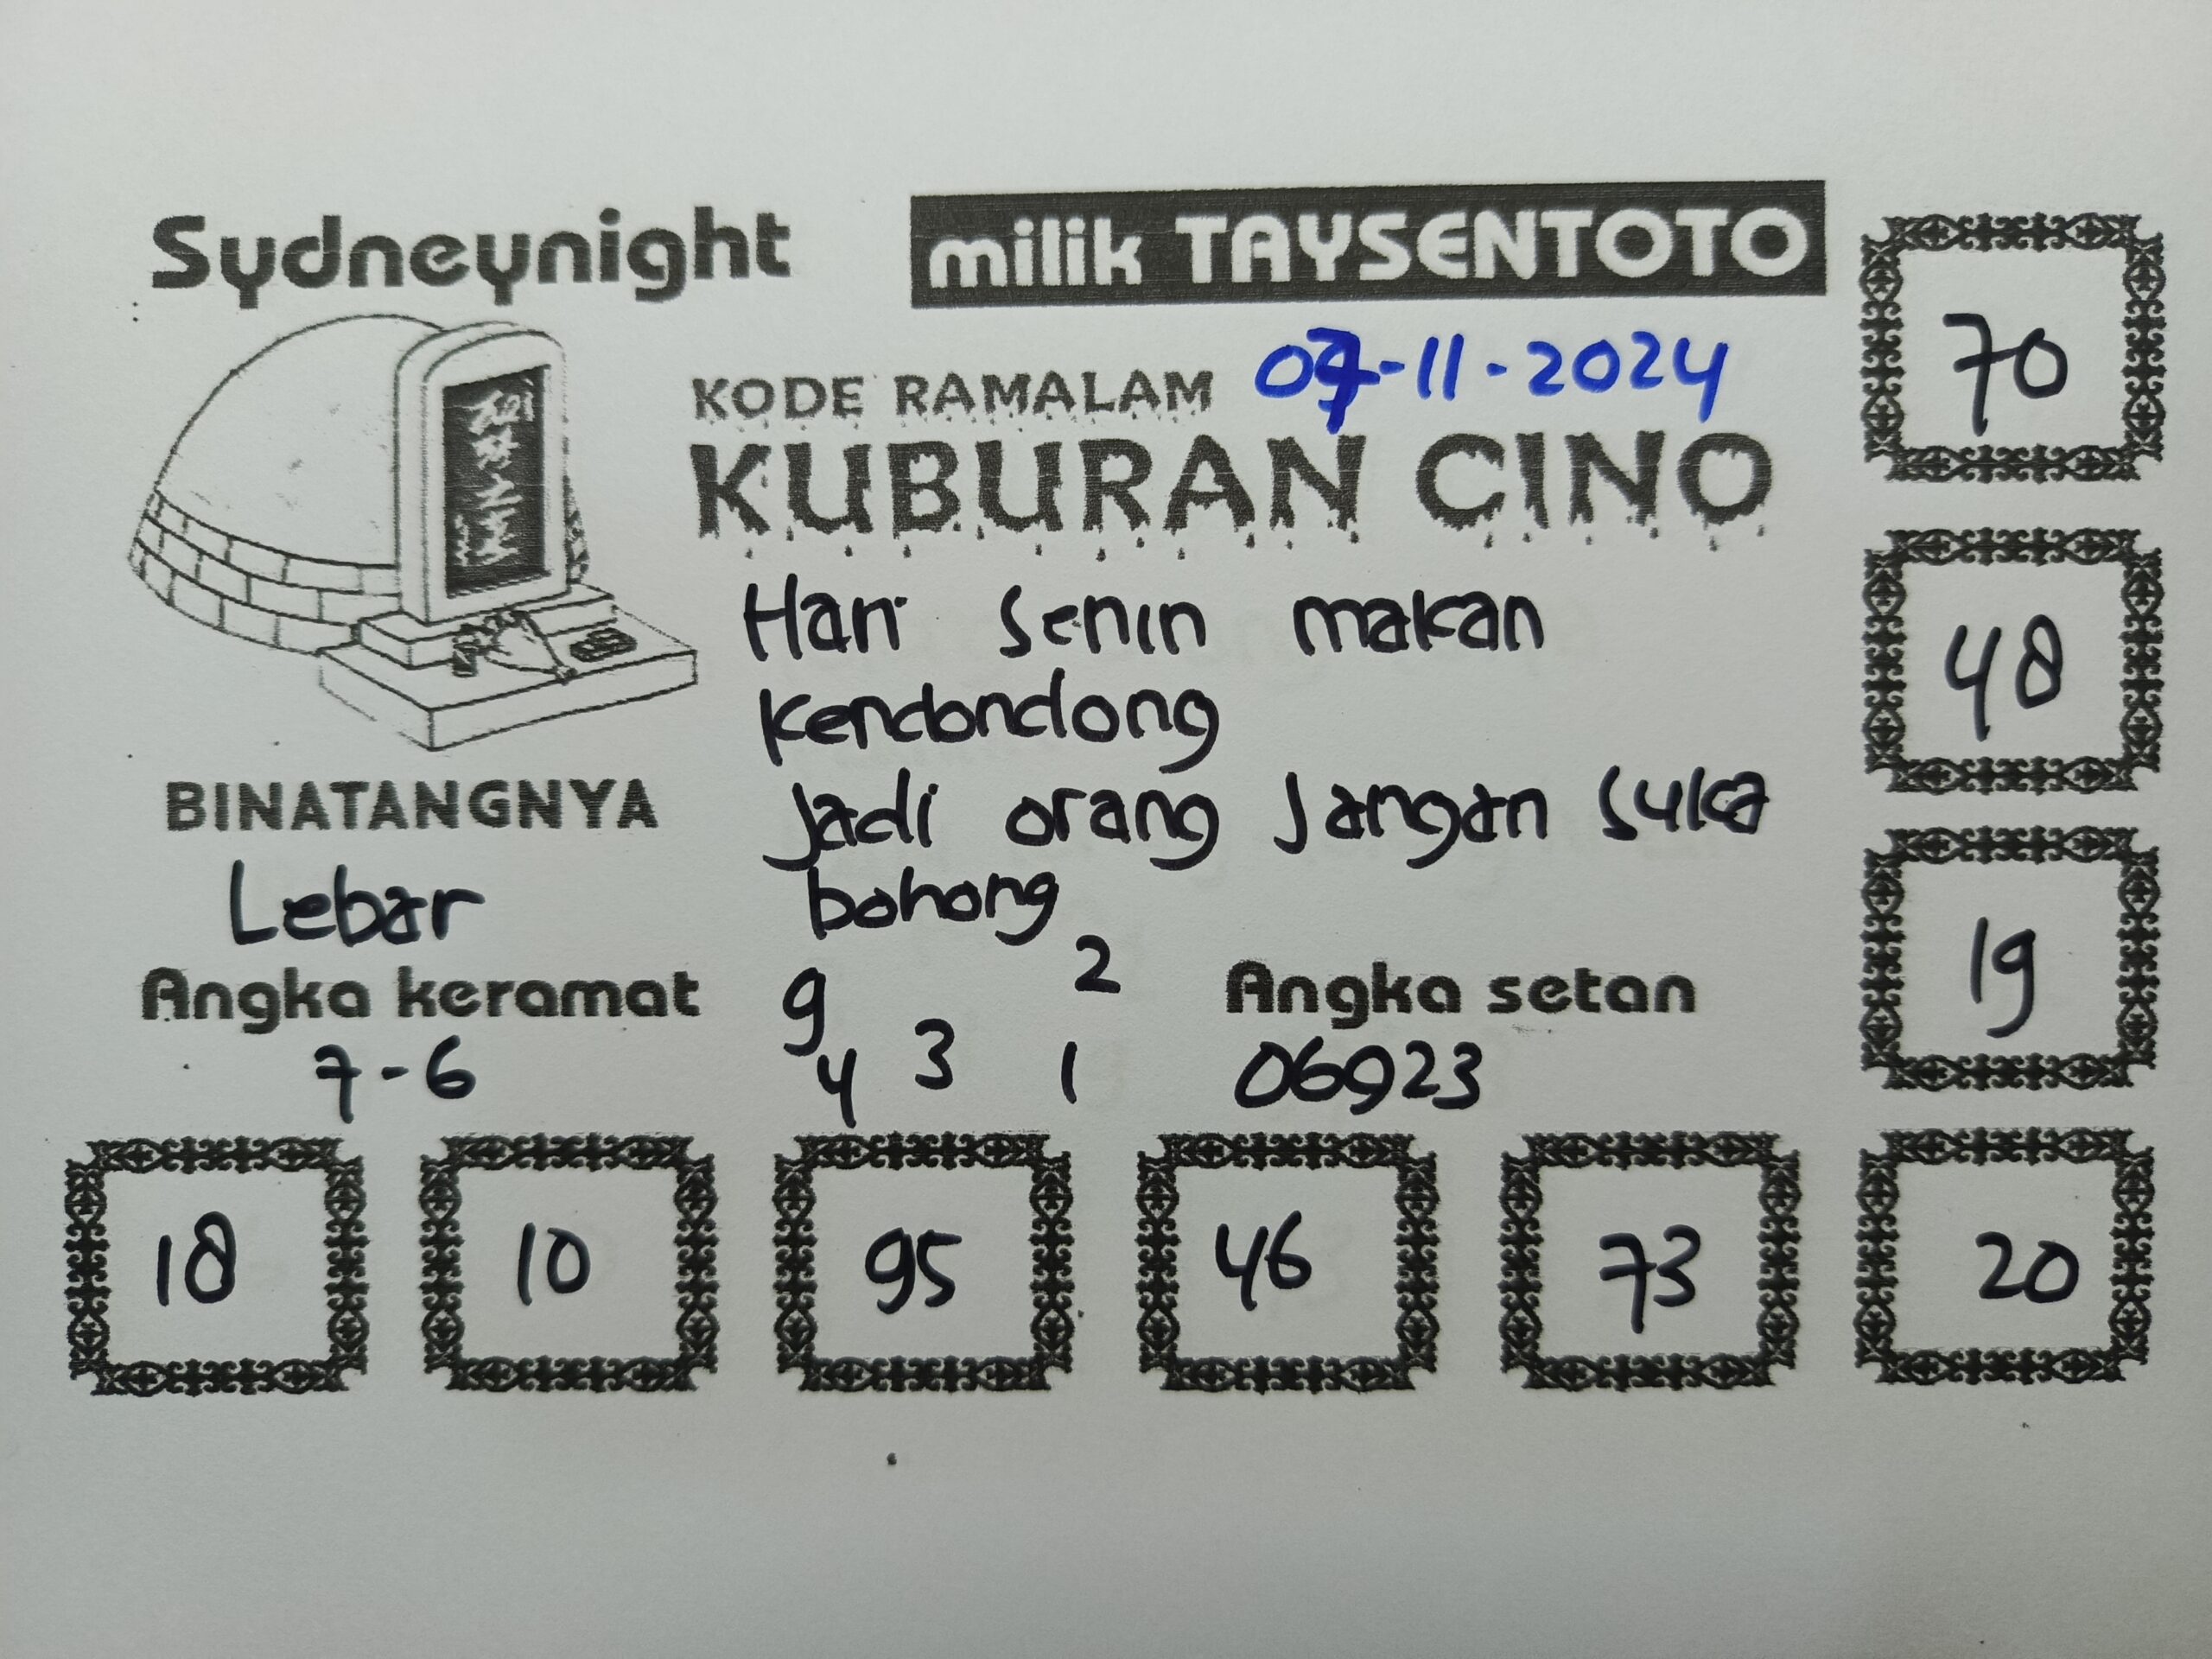 Sydneynight
milik TAYSENTOTO
KODE RAMALAM 07-11-2024
KUBURAN CINO
Hari Senin makan
kendondong
Jadi orang Jangan suka
bohong
BINATANGNYA
Lebar
Angka keramat
7-6
9 2
4 3 1
Angka setan
06923
70
48
19
18 10 95 46 73 20